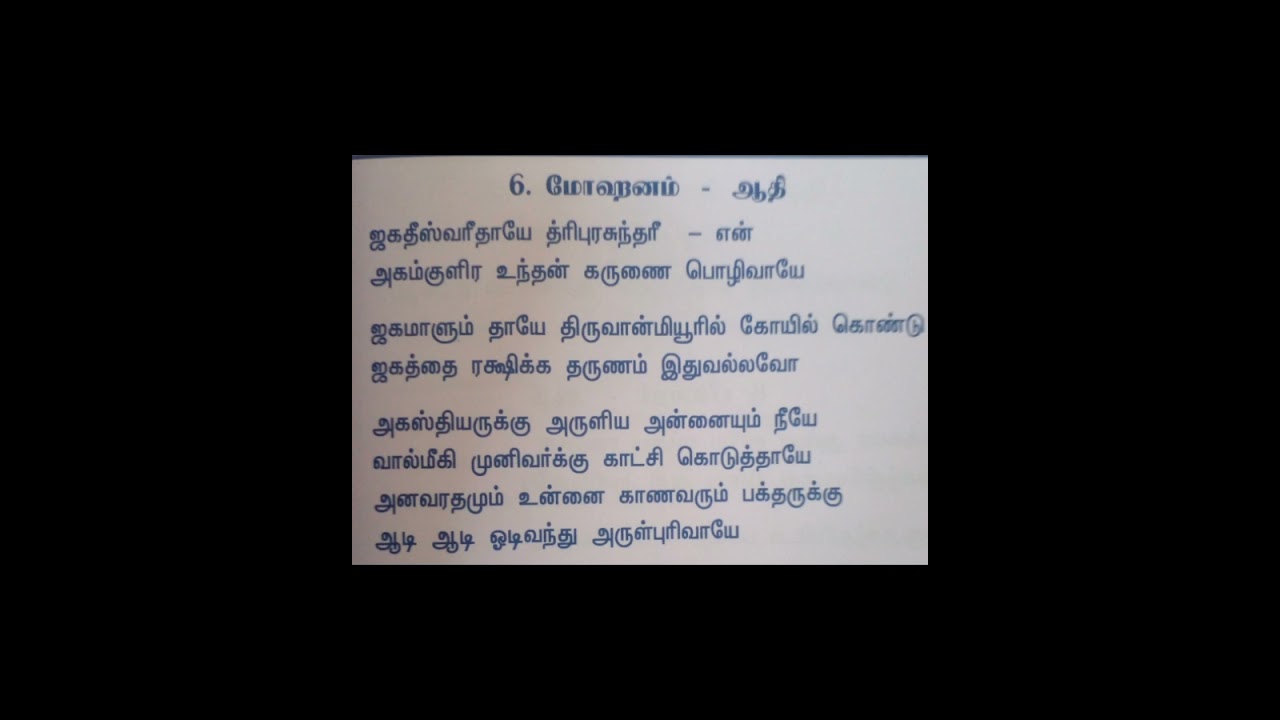 6. மோஹனம் - ஆதி
ஜகதீஸ்வரீதாயே த்ரிபுரசுந்தரீ – என்
அகம்குளிர உந்தன் கருணை பொழிவாயே
ஜகமாளும் தாயே திருவான்மியூரில் கோயில் கொண்டு
ஜகத்தை ரக்ஷிக்க தருணம் இதுவல்லவோ
அகஸ்தியருக்கு அருளிய அன்னையும் நீயே
வால்மீகி முனிவர்க்கு காட்சி கொடுத்தாயே
அனவரதமும் உன்னை காணவரும் பக்தருக்கு
ஆடி ஆடி ஓடிவந்து அருள்புரிவாயே